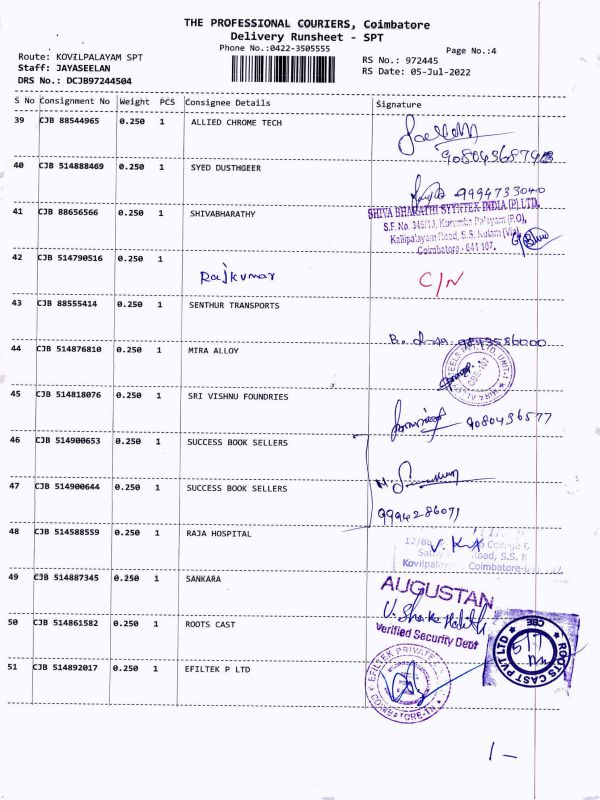 THE PROFESSIONAL COURIERS, Coimbatore
Delivery Runsheet - SPT
Phone No.:0422-3505555
Page No.:4
Route: KOVILPALAYAM SPT
RS No.: 972445
Staff: JAYASEELAN
RS Date: 05-Jul-2022
DRS No.: DCJB97244504
S No Consignment No Weight PCS Consignee Details Signature
39 CJB 88544965 0.250 1 ALLIED CHROME TECH
40 CJB 514888469 0.250 1 SYED DUSTHGEER
9994733040
41 CJB 88656566 0.250 1 SHIVABHARATHY
SHIVA BHARATHI SYYNTEX INDIA (P) LTD,
Kallipalayam Road, S.S. Kulam (Via),
Coimbatore - 641 107.
42 CJB 514790516 0.250 1
Rajkumar C/N
43 CJB 88555414 0.250 1 SENTHUR TRANSPORTS
44 CJB 514876810 0.250 1 MIRA ALLOY
45 CJB 514818076 0.250 1 SRI VISHNU FOUNDRIES
9080436577
46 CJB 514900653 0.250 1 SUCCESS BOOK SELLERS
47 CJB 514900644 0.250 1 SUCCESS BOOK SELLERS
9994286071
48 CJB 514588559 0.250 1 RAJA HOSPITAL
Road, S.S. K
Coimbatore-
49 CJB 514887345 0.250 1 SANKARA
AUGUSTAN
50 CJB 514861582 0.250 1 ROOTS CAST
Verified Security Dept
ROOTS CAST PVT LTD
CBE
51 CJB 514892017 0.250 1 EFILTEK P LTD
EFILTEK PRIVATE
COIMBATORE-
1 -